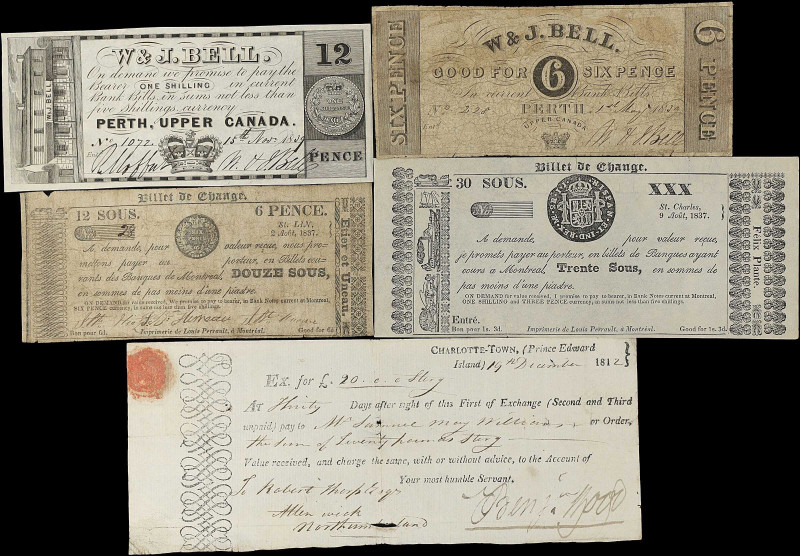 W & J. BELL. 12
On demand we promise to pay the
Bearer ONE SHILLING in current
Bank Bills, in sums not less than
five shillings currency
PERTH, UPPER CANADA.
No. 1072 15th Nov. 1839
W. & J. Bell
PENCE
W & J BELL
SIX PENCE
W & J. BELL.
GOOD FOR 6 SIX PENCE
In current Bank Bills
No. 228 PERTH 1839
UPPER CANADA
W & J Bell
6 PENCE
Billet de Change.
12 SOUS. 6 PENCE.
St. LIN,
2 Août, 1837.
A demande, pour valeur reçue, nous pro-
mettons payer au porteur, en Billets cou-
rants des Banques de Montreal, DOUZE SOUS,
en sommes de pas moins d'une piastre.
ON DEMAND for value received, We promise to pay to bearer, in Bank Notes current at Montreal,
SIX PENCE currency, in sums not less than five shillings.
Bon pour 6d. Imprimerie de Louis Perrault, à Montréal. Good for 6d
Billet de Change.
30 SOUS. XXX
St. Charles,
9 Août, 1837.
A demande, pour valeur reçue,
je promets payer au porteur, en billets de Banques ayant
cours a Montreal, Trente Sous, en sommes de
pas moins d'une piastre.
ON DEMAND for value received, I promise to pay to bearer, in Bank Notes current at Montreal,
ONE SHILLING and THREE PENCE currency, in sums not less than five shillings.
Entré.
Bon pour 1s. 3d. Imprimerie de Louis Perrault, à Montréal. Good for 1s. 3d.
Félix Plante.
CHARLOTTE-TOWN, (Prince Edward
Island) 19th December 1812
Ex. for £. 20.0.0 Sterg
At Thirty Days after sight of this First of Exchange (Second and Third
unpaid) pay to Mr Samuel May Williams or Order,
the sum of Twenty pounds Sterg
Value received, and charge the same, with or without advice, to the Account of
Your most humble Servant.
To Robert Thorp Esqr
Allenwick
Northumberland
Benjn Wood